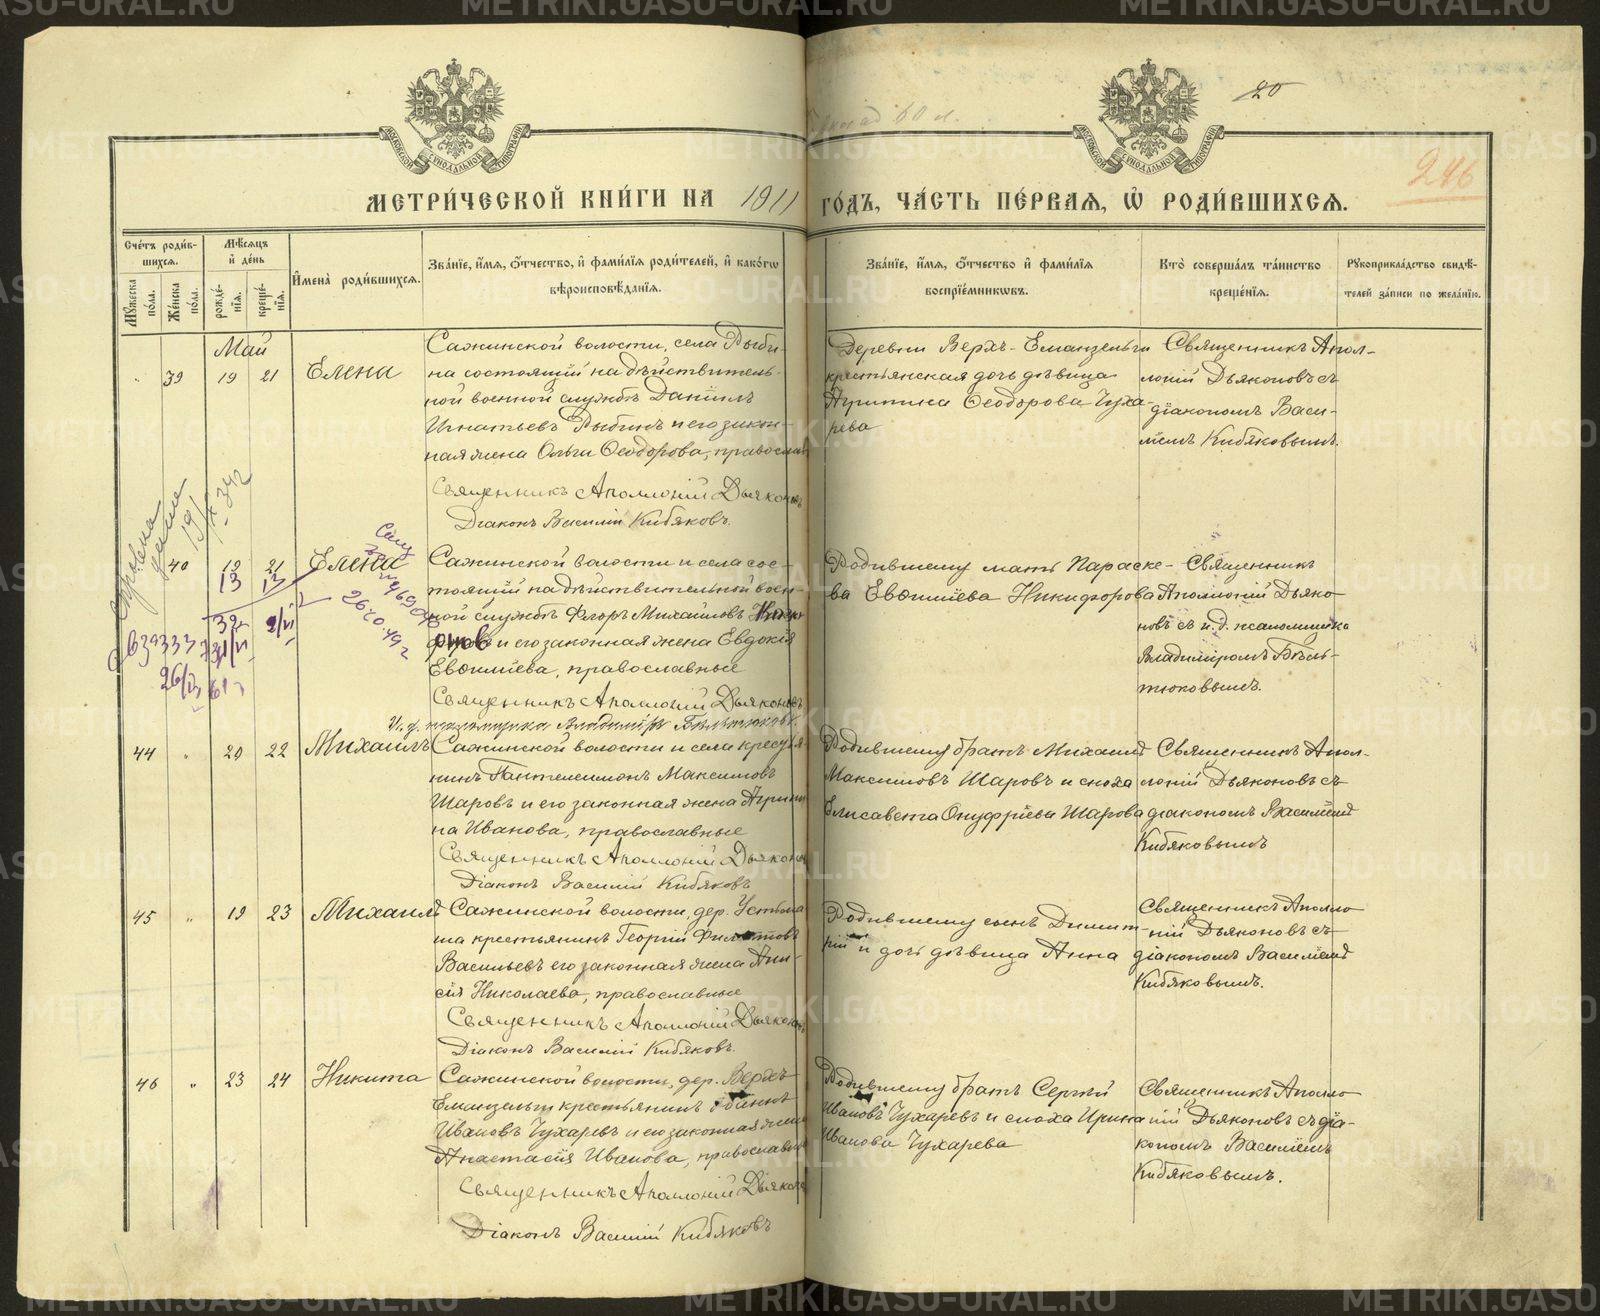 20
246
МЕТРИ́ЧЕСКОЙ КНИ́ГИ НА 1911 ГО́ДЪ, ЧА́СТЬ ПЕ́РВАЯ, Ѡ РОДИ́ВШИХСѦ.
Сче́тъ роди́в-
шихсѧ.
Мꙋжеска по́ла.
Же́нска по́ла.
Мѣ́сѧцъ
и҆ де́нь
рожде́-
нїѧ.
креще́-
нїѧ.
И҆мена̀ роди́вшихсѧ.
Зва́нїе, и҆́мѧ, ѻ҆́тчество, и҆ фами́лїѧ роди́телей, и҆ како́гѡ
вѣроисповѣ́данїѧ.
Зва́нїе, и҆́мѧ, ѻ҆́тчество и҆ фами́лїѧ
воспрїе́мникѡвъ.
Кто̀ соверша́лъ та́инство
креще́нїѧ.
Рꙋкоприкла́дство свидѣ́-
телей за́писи по жела́нїю.
Май
" 39 19 21 Елена
Сажинской волости, села Рыби-
на состоящій на дѣйствитель-
ной военной службѣ Даніилъ
Игнатьевъ Рыбинъ и его закон-
ная жена Ольга Ѳеодорова, православ
Священникъ Аполлоній Дьяконовъ
Діаконъ Василій Кибяковъ.
Деревни Верхъ-Емандельги
крестьянская дочь дѣвица
Ѳеодорова Чуха-
рева
Священникъ Апол-
лоній Дьяконовъ съ
діакономъ Васи-
ліемъ Кибяковымъ.
40 19 21 Елена
Сажинской волости и села сос-
тоящій на дѣйствительной воен-
ной службѣ Флоръ Михаиловъ Ники-
форовъ и его законная жена Евдокія
Евѳиміева, православные
Священникъ Аполлоній Дьяконовъ
И. д. псаломщика Владиміръ Бѣльтюковъ.
Родившему мать Параске-
ва Евѳиміева Никифорова
Священникъ
Аполлоній Дьяко
новъ съ и. д. псаломщика
Владиміромъ Бѣль-
тюковымъ.
44 " 20 22 Михаилъ
Сажинской волости и села крестья-
нинъ Пантелеимонъ Максимовъ
Шаровъ и его законная жена Агрипи
на Иванова, православные
Священникъ Аполлоній Дьяконовъ
Діаконъ Василій Кибяковъ
Родившему братъ Михаилъ
Максимовъ Шаровъ и сноха
Елисавета Онуфріева Шарова
Священникъ Апол-
лоній Дьяконовъ съ
діакономъ Василіемъ
Кибяковымъ
45 " 19 23 Михаилъ
Сажинской волости, дер.
крестьянинъ Георгій Филатовъ
Васильевъ его законная жена Ани-
сія Николаева, православные
Священникъ Аполлоній Дьяконовъ
Діаконъ Василій Кибяковъ.
Родившему сынъ Димит-
рій и дочь дѣвица Анна
Священникъ Аполло
ній Дьяконовъ съ
діакономъ Василіемъ
Кибяковымъ.
46 " 23 24 Никита
Сажинской волости, дер. Верхъ
Емандельги крестьянинъ
Ивановъ Чухаревъ и его законная жена
Анастасія Иванова, православные
Священникъ Аполлоній Дьяконов
Діаконъ Василій Кибяковъ
Родившему братъ Сергѣй
Ивановъ Чухаревъ и сноха Ирина
Иванова Чухарева
Священникъ Аполло
ній Дьяконовъ съ діа-
кономъ Василіемъ
Кибяковымъ.
METRIKI.GASO-URAL.RU